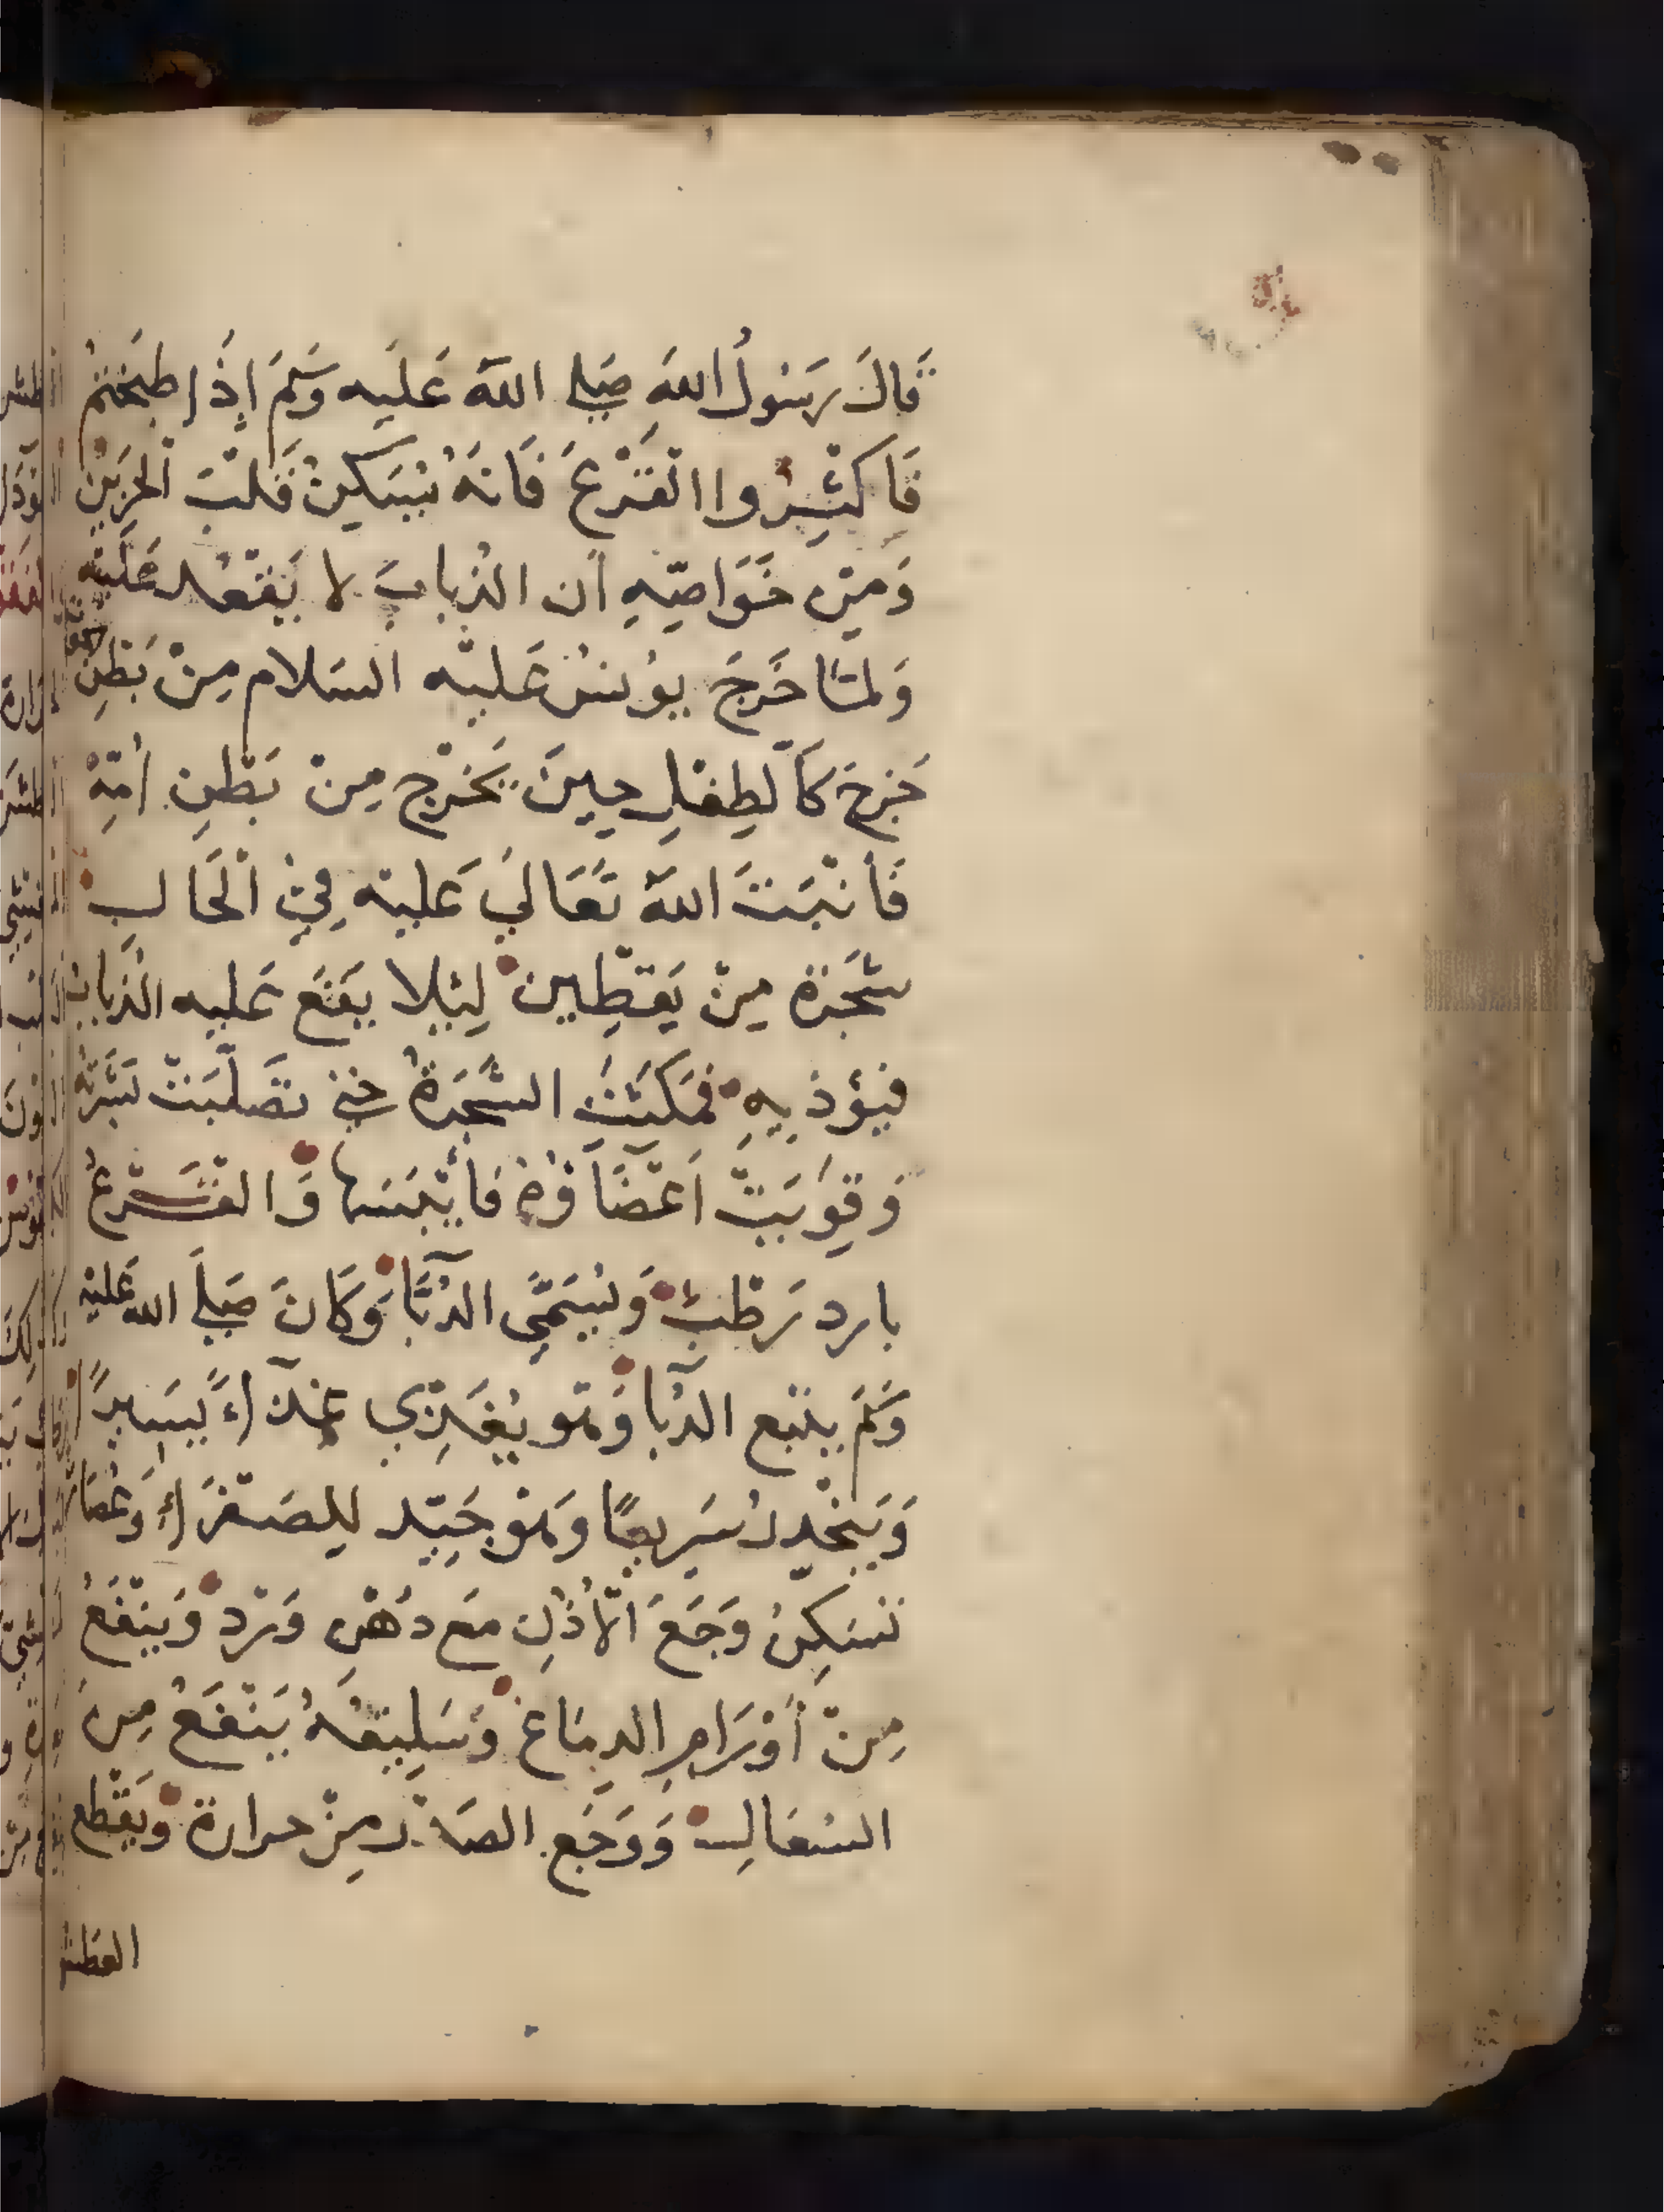 قَالَ رَسُولُ اللهِ صَلى اللهُ عَلَيه وَسَلمَ اِذَا طبَختُمْ
فَاكثِرُوا القَرْعَ فَانهُ يُسَكِنُ قَلْبَ الحَزِين
وَمِنْ خَوَاصِّهِ اَن الذُبابَ لا يَقْعُد عَليْهِ
وَلمَّا خَرَجَ يُونسُ عَليْه السَلام مِنْ بَطْنِ الحوت
خَرجَ كَالطِفْلِ حِينَ يَخْرج مِنْ بَطْنِ اُمِّهْ
فَأنْبَتَ اللهُ تَعَالي عَليْه فِي الْحَالِ
شَجَرَة مِنْ يَقطِين لِئلا يَقَع عَليه الذبابُ
فيؤذِيهِ فمَكثَتْ الشَجَرَةُ حَتي تصَلَّبَتْ بَشَرَتُه
وَقَوِيَتْ اَعْضَاؤهُ فَأيْبَسَها وَالقَرْعُ
بارد رَطْبٌ وَيُسَمَّي الدُبَّا وَكَانَ صَلَي الله عَليْه
وَسَلمَ يتْبع الدُبا وَهو يُغَذِي غِذَاءً يَسِيراً
وَيَنْحَدِرُ سَرِيعًا وَهو جَيِّد لِلصَفْرَاءِ وَعُصَارَته
تسَكِنُ وَجَعَ الأذُنِ مَع دُهْنِ وَرْد وَيَنْفَعُ
مِنْ أَوْرَامِ الدِمَاغ وَسَلِيقهُ يَنْفَعُ مِن
السُعَالِ وَوَجَع الصَدْر مِنْ حرارة وَيَقْطع
العطش